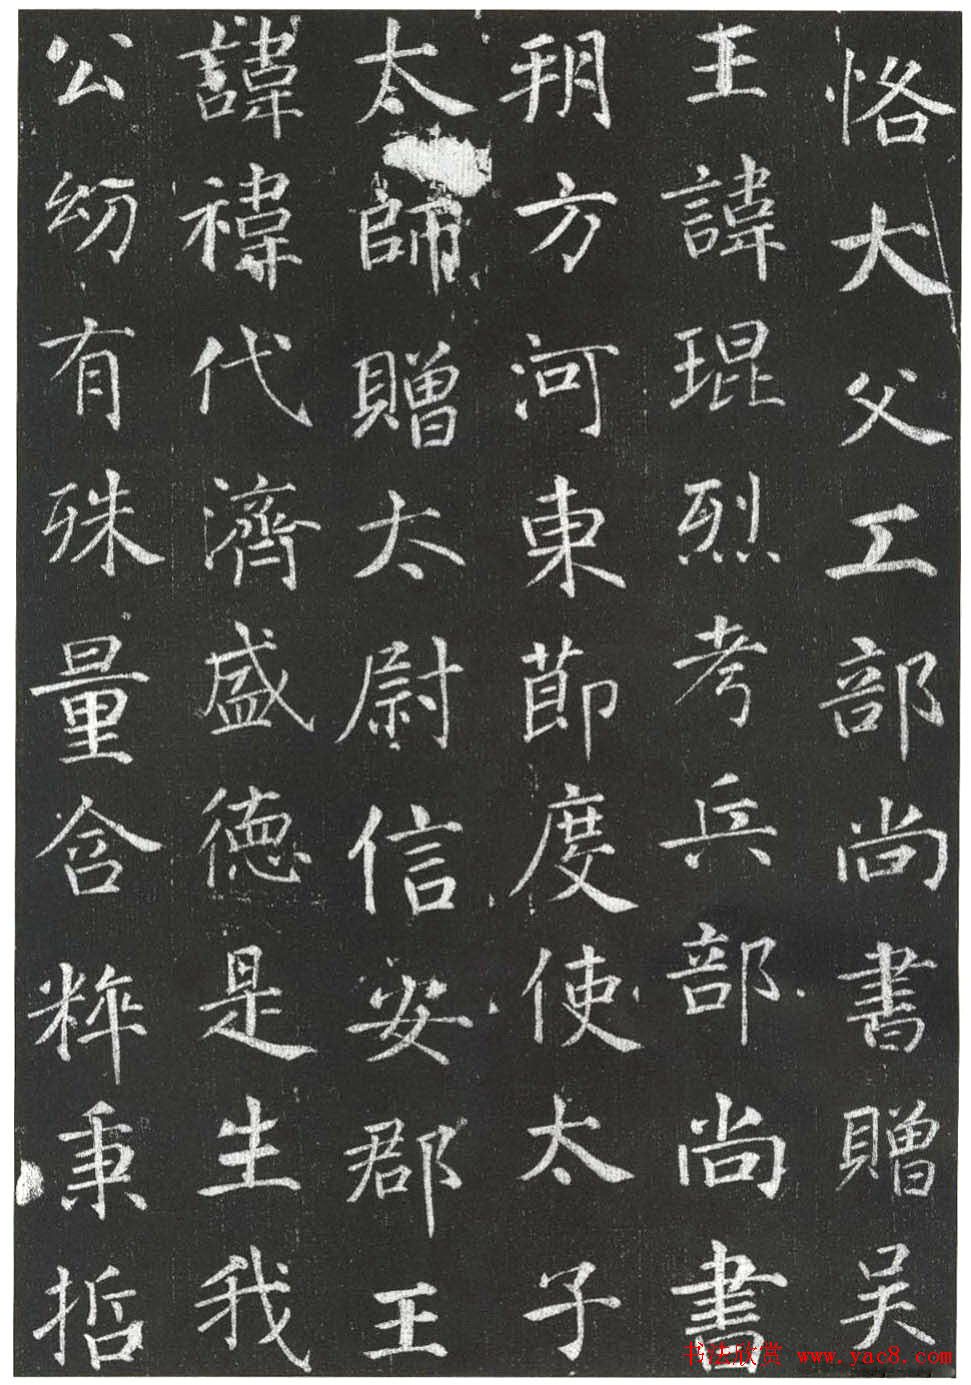 恪大父工部尚書贈吴
王諱琨烈考兵部尚書
朔方河東節度使太子
太師贈太尉信安郡王
諱禕代濟盛德是生我
公幼有殊量含粹秉哲
书法欣赏 www.yac8.com